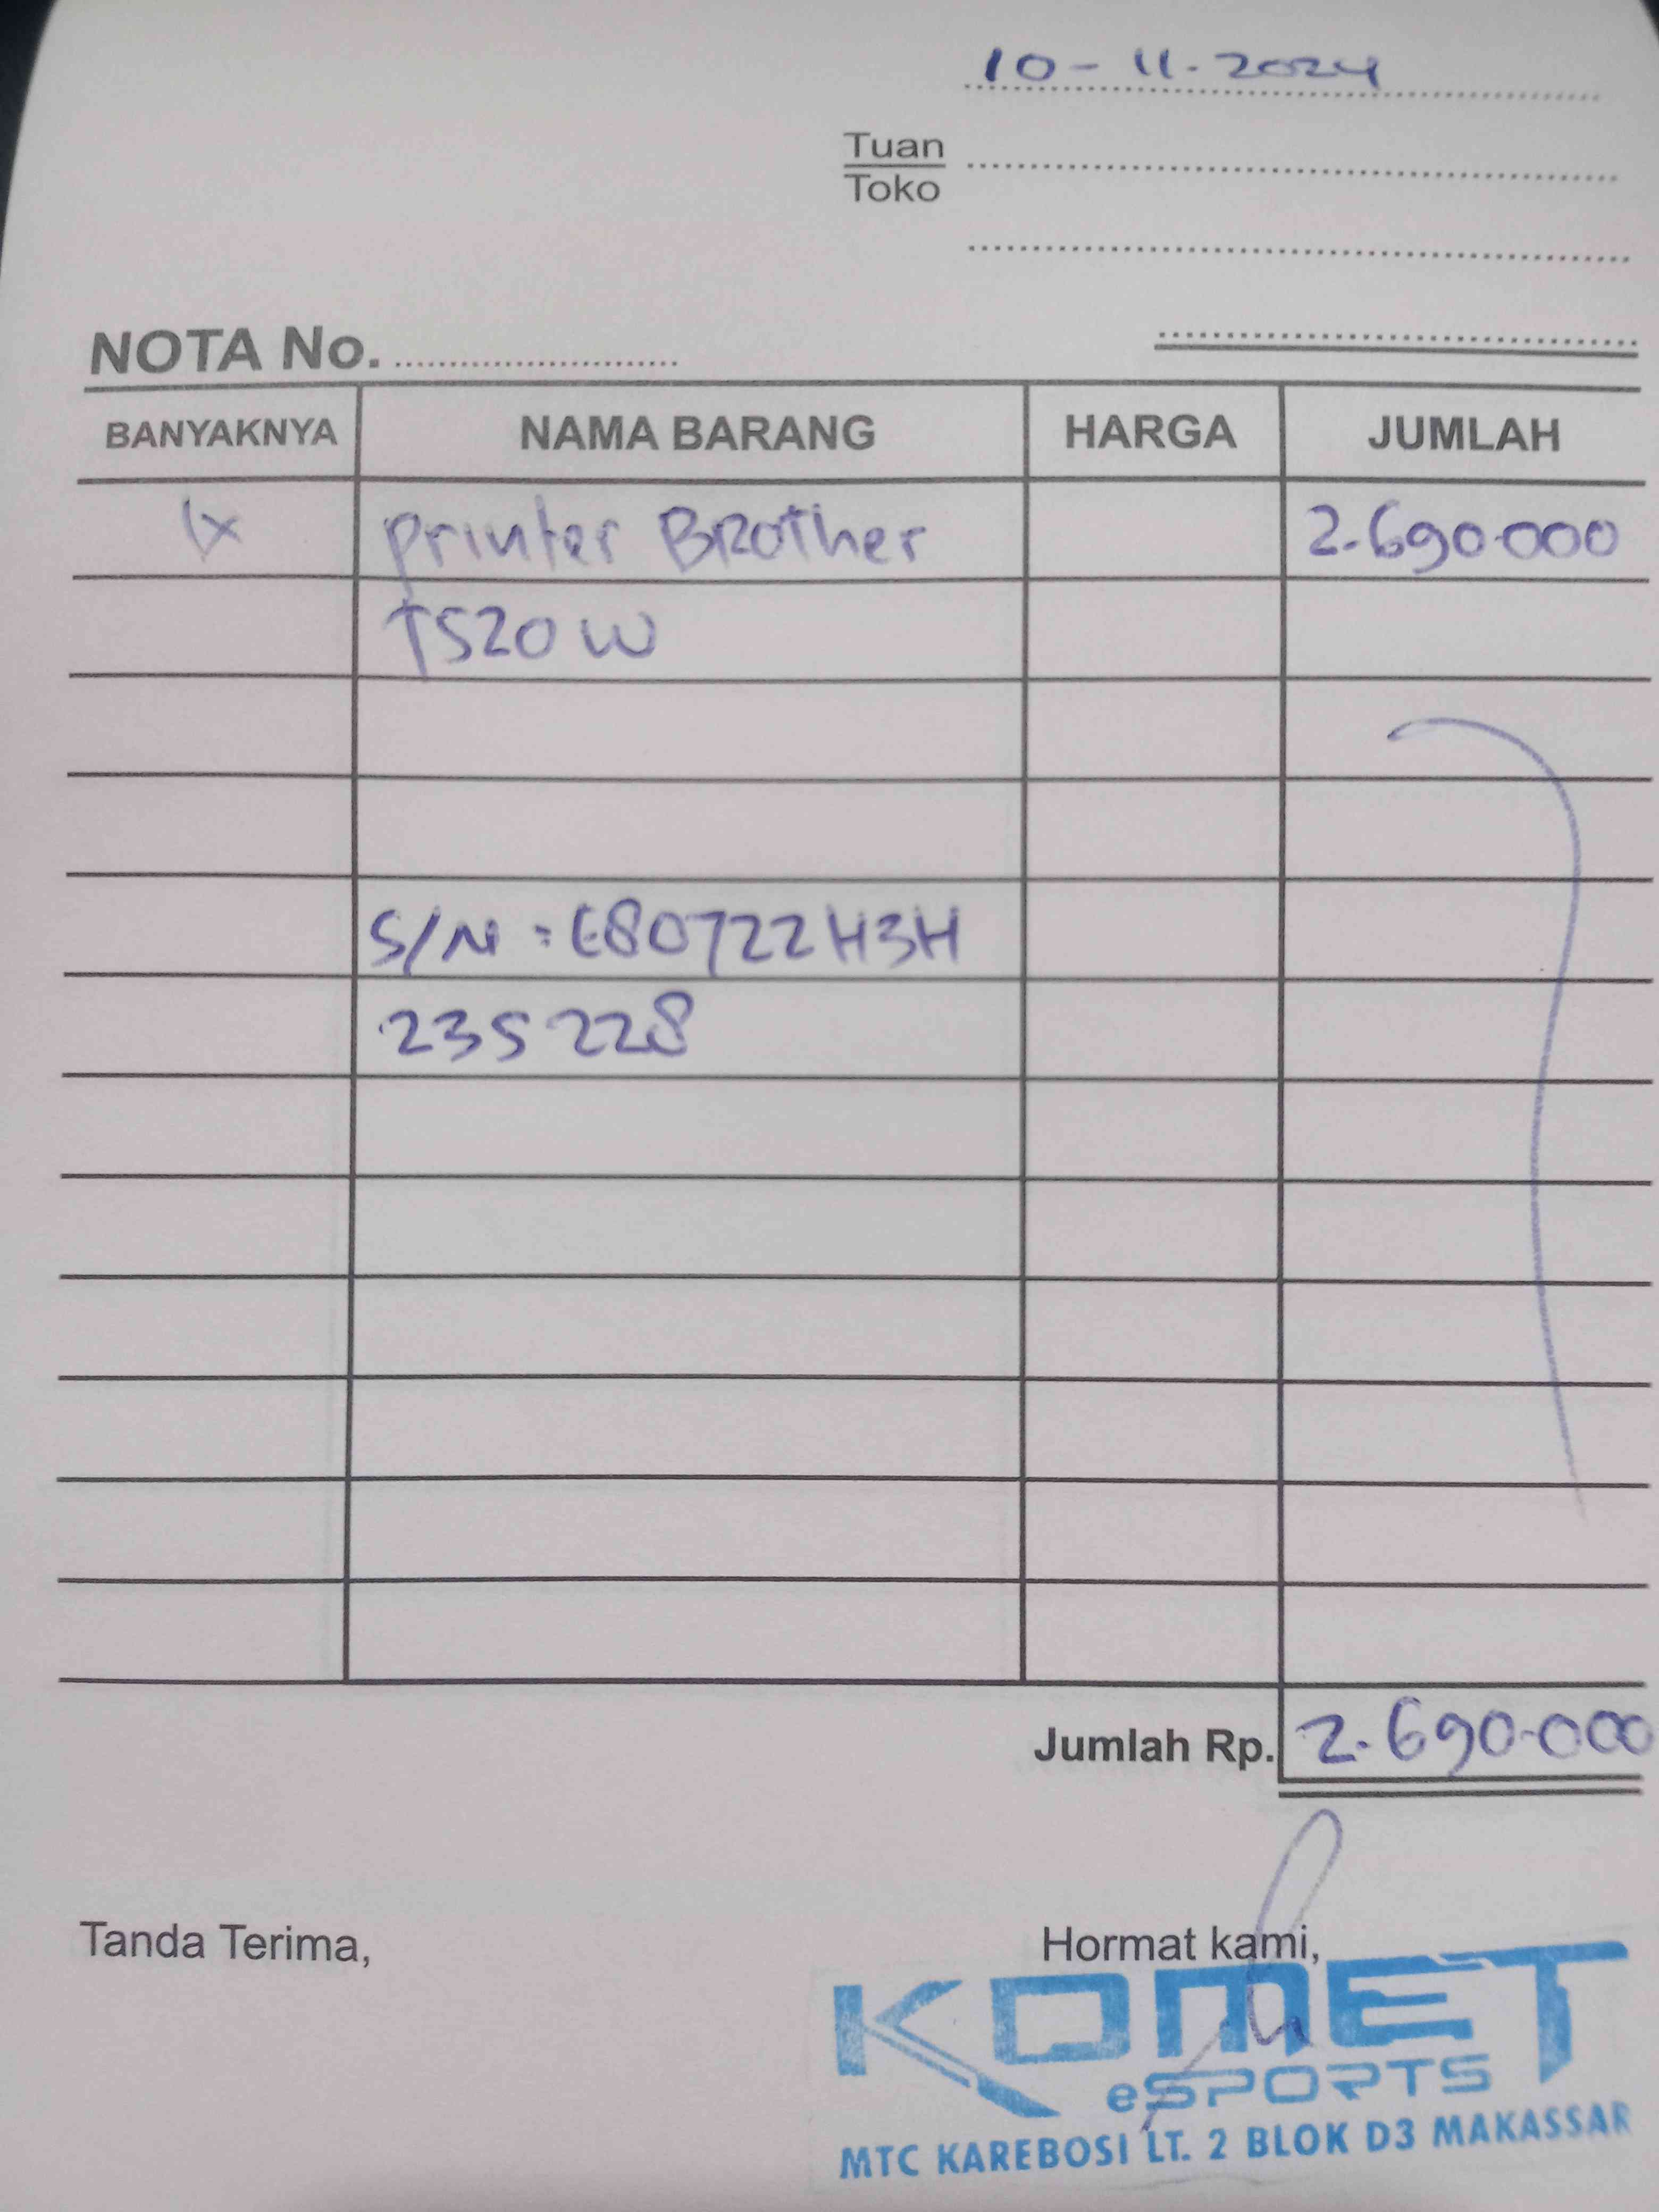 10-11-2024
Tuan
Toko
NOTA No.
BANYAKNYA NAMA BARANG HARGA JUMLAH
1x Printer BRother 2.690.000
T520 W
S/N : E80722H3H
235228
Jumlah Rp. 2.690.000
Tanda Terima, Hormat kami,
KOMET
eSPORTS
MTC KAREBOSI LT. 2 BLOK D3 MAKASSAR